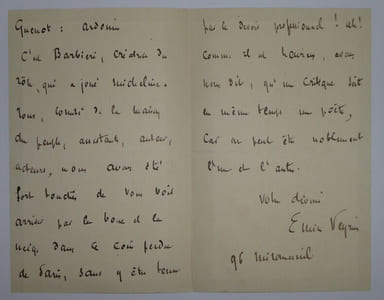 Guenot : Ardouin
C'est Barbieri, créatrice du
rôle, qui a joué Micheline.
Nous, comité de la maison
du peuple, assistants, auteur,
acteurs, nous avons été
fort touchés de vous voir
arriver par la boue et la
neige dans ce coin perdu
de Paris, sans y être tenu
par le devoir professionnel ! Ah!
comme il est heureux, avons
nous dit, qu'un critique soit
en même temps un poète,
car on peut être noblement
l'un et l'autre.
Votre dévoué
Emile Veyrin
96 Miromesnil